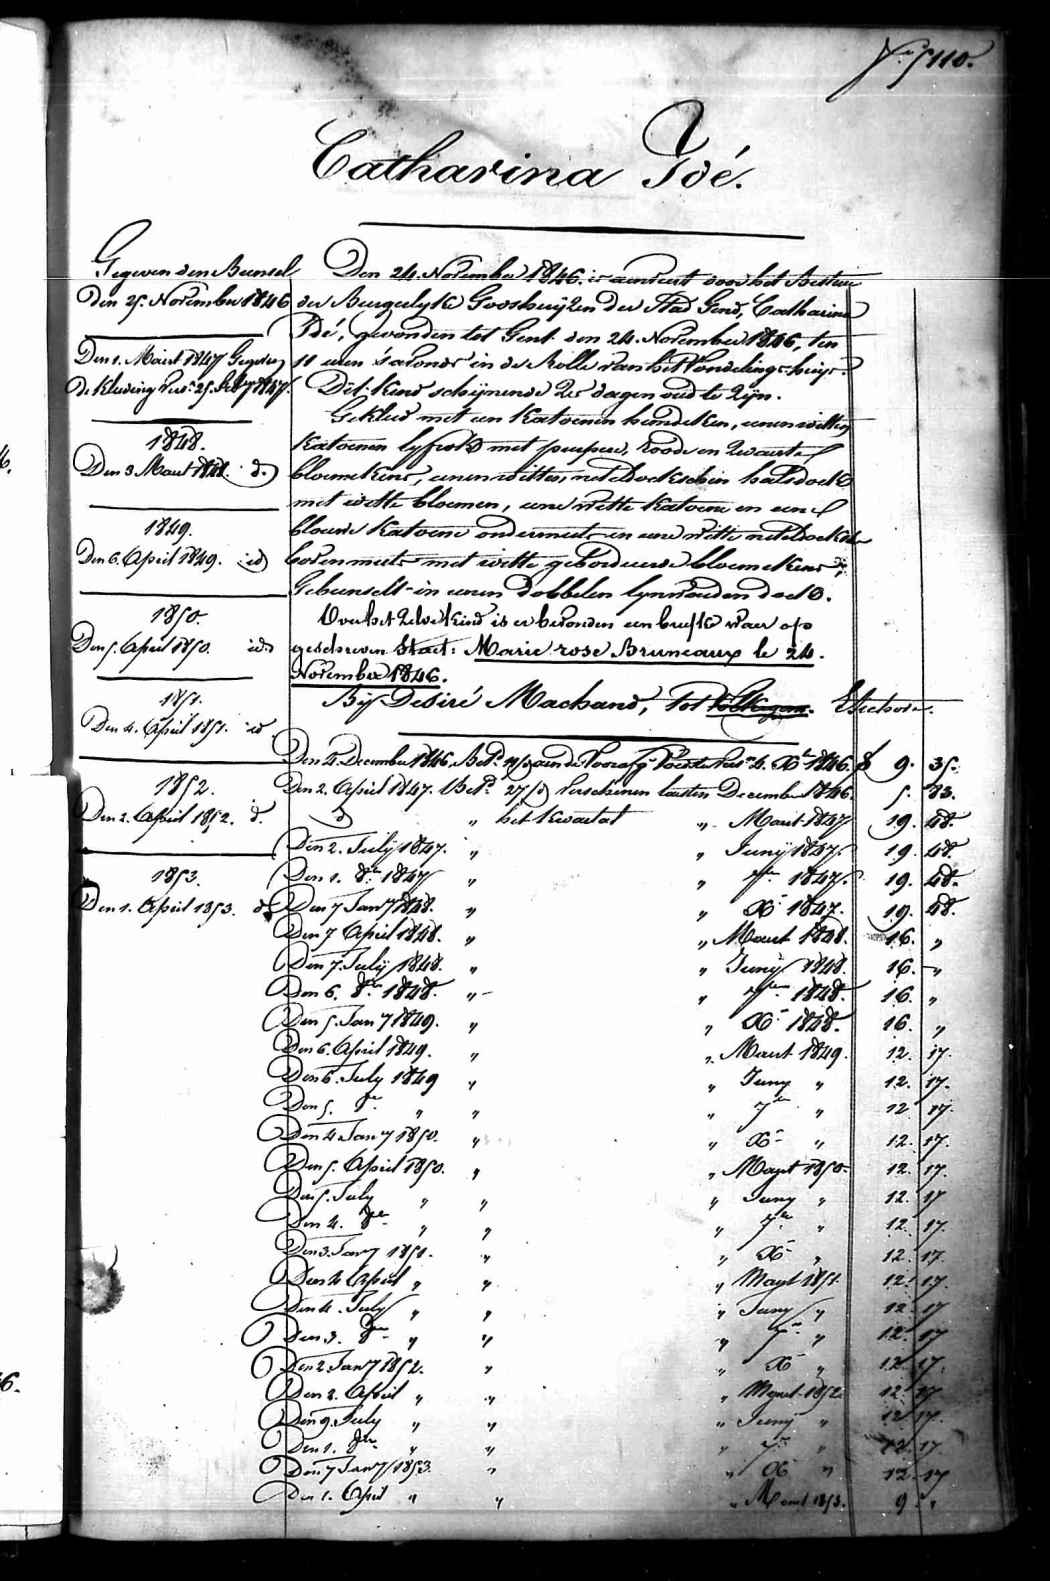 N.º 5110.
Catharina Idé.
Gegeven den Bunsel
Den 25. November 1846
Den 1. Maert 1847 Gegeven
de Kleeding
1848.
Den 3 Maert 1848. id.
1849.
Den 6. April 1849. id
1850.
Den 5. April 1850. id.
1851.
Den 4. April 1851. id
1852.
Den 2. April 1852. id.
1853.
Den 1. April 1853. id
Den 24. November 1846. is aenveert door het Bestuer
der Burgerlyke Godshuyzen der Stad Gend, Catharina
Idé, gevonden tot Gent den 24. November 1846, ten
11 uren s'avonds in de Rolle van het Vondelingshuys.
Dit kind schijnende 2es dagen oud te zijn.
Gekleed met een katoenen hemdeken, eenen witten
katoenen lyfrok met purpere, roode en zwarte
bloemekens, eenen witten neteldoekschen halsdoek
met witte bloemen, eene witte katoene en eene
blouwe katoene ondermuts en eene witte neteldoeke
bovenmuts met witte geborduerde bloemekens;
Gebunselt in eenen dobbelen lynwaeden doek.
Over het zelve kind is er bevonden een briefke waer op
geschreven staet: Marie rose Bruneaux le 24.
November 1846.
Bij Desiré Machand, tot Elsehove.
Den 4. December 1846. Bet. 10 Xb 1846. f 9. 35.
Den 2. April 1847. Bet. 27 Verschenen laesten December 1846. 5. 83.
D " het kwartael " Maert 1847 19. 48.
Den 2. July 1847. " " Junij 1847. 19. 48.
Den 1. 8bre 1847 " " 7bre 1847. 19. 48.
Den 7 Jany 1848. " " Xb 1847. 19. 48.
Den 7 April 1848. " " Maert 1848. 16. "
Den 7. Julij 1848. " " Junij 1848. 16. "
Den 6. 8bre 1848. " " 7bre 1848. 16. "
Den 5. Jany 1849. " " Xb 1848. 16. "
Den 6. April 1849. " " Maert 1849. 12. 17.
Den 6. July 1849 " " Juny " 12. 17.
Den 5. 8bre " " " 7bre " 12 17.
Den 4 Jany 1850. " " Xb " 12. 17.
Den 5. April 1850. " " Maert 1850. 12. 17.
Den 5. July " " " Juny " 12. 17
Den 4. 8bre " " " 7bre " 12. 17.
Den 3. Jany 1851. " " Xb " 12. 17.
Den 4 April " " " Maert 1851. 12. 17
Den 4. July " " " Juny " 12. 17
Den 3. 8bre " " " 7bre " 12. 17
Den 2. Jany 1852. " " Xb " 12. 17.
Den 2. April " " " Maert 1852 12 17
Den 9. July " " " Junij " 12 17.
Den 1. 8bre " " " 7bre " 12. 17.
Den 7 Jany 1853. " " Xb " 12. 17
Den 1. April " " " Maert 1853. 9 "